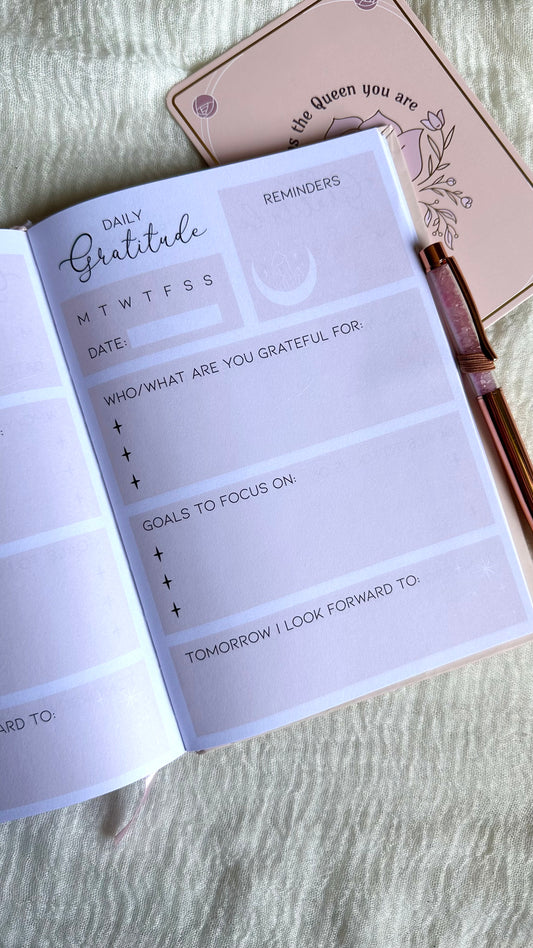 s the Queen you are
DAILY
Gratitude
REMINDERS
M T W T F S S
DATE:
WHO/WHAT ARE YOU GRATEFUL FOR:
GOALS TO FOCUS ON:
TOMORROW I LOOK FORWARD TO:
ARD TO: